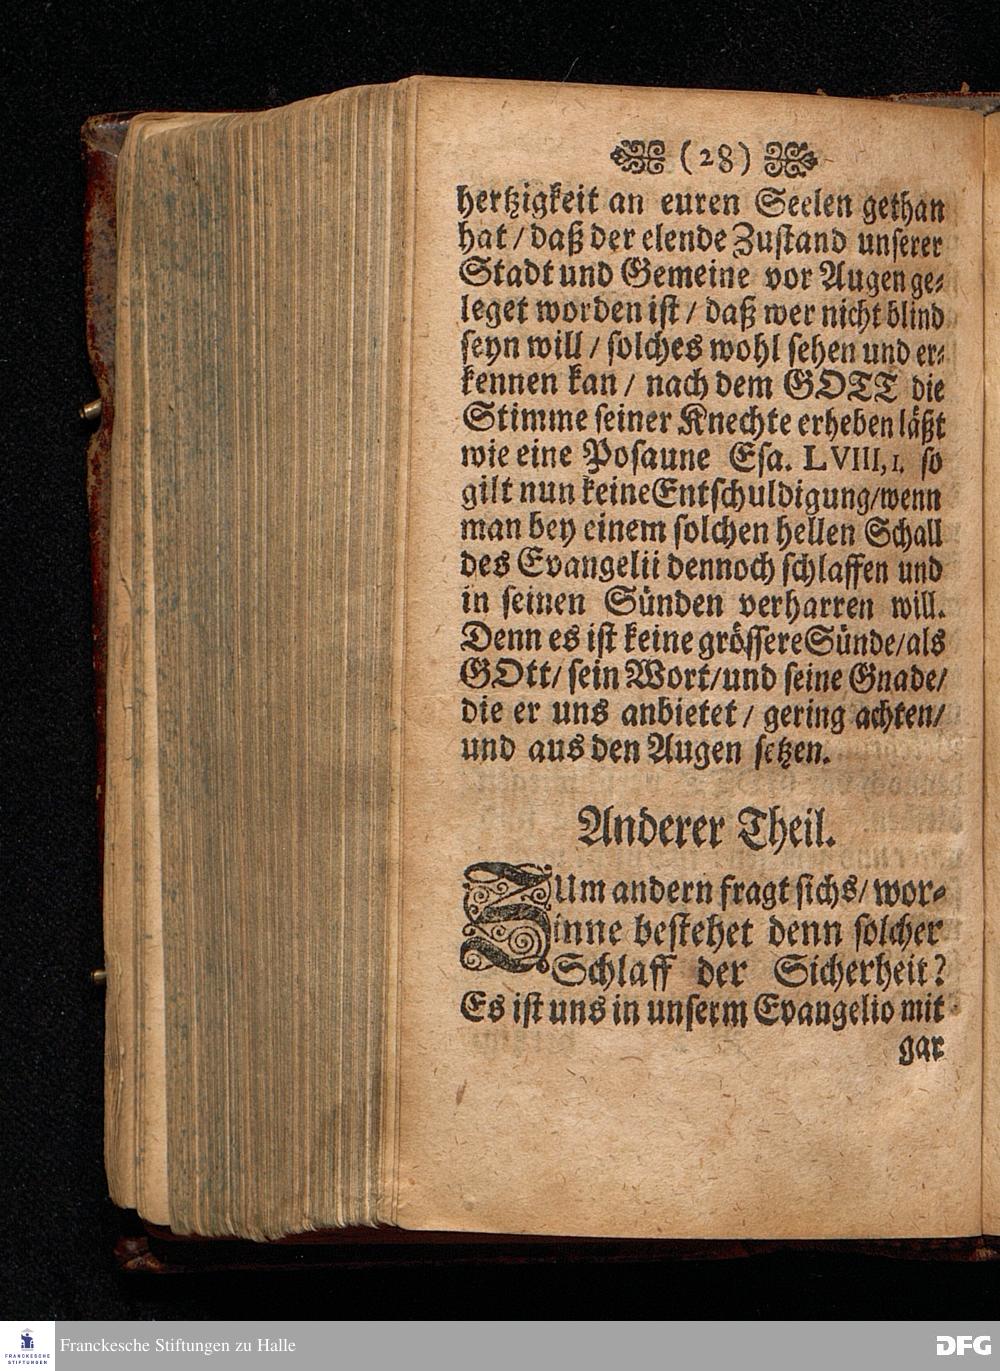 (28)
hertzigkeit an euren Seelen gethan
hat / daß der elende Zustand unserer
Stadt und Gemeine vor Augen ge-
leget worden ist / daß wer nicht blind
seyn will / solches wohl sehen und er-
kennen kan / nach dem GOTT die
Stimme seiner Knechte erheben läßt
wie eine Posaune Esa. LVIII, 1. so
gilt nun keine Entschuldigung / wenn
man bey einem solchen hellen Schall
des Evangelii dennoch schlaffen und
in seinen Sünden verharren will.
Denn es ist keine grössere Sünde / als
GOtt / sein Wort / und seine Gnade /
die er uns anbietet / gering achten /
und aus den Augen setzen.
Anderer Theil.
ZUm andern fragt sichs / wor-
inne bestehet denn solcher
Schlaff der Sicherheit?
Es ist uns in unserm Evangelio mit
gar
FRANCKESCHE
STIFTUNGEN
Franckesche Stiftungen zu Halle
DFG